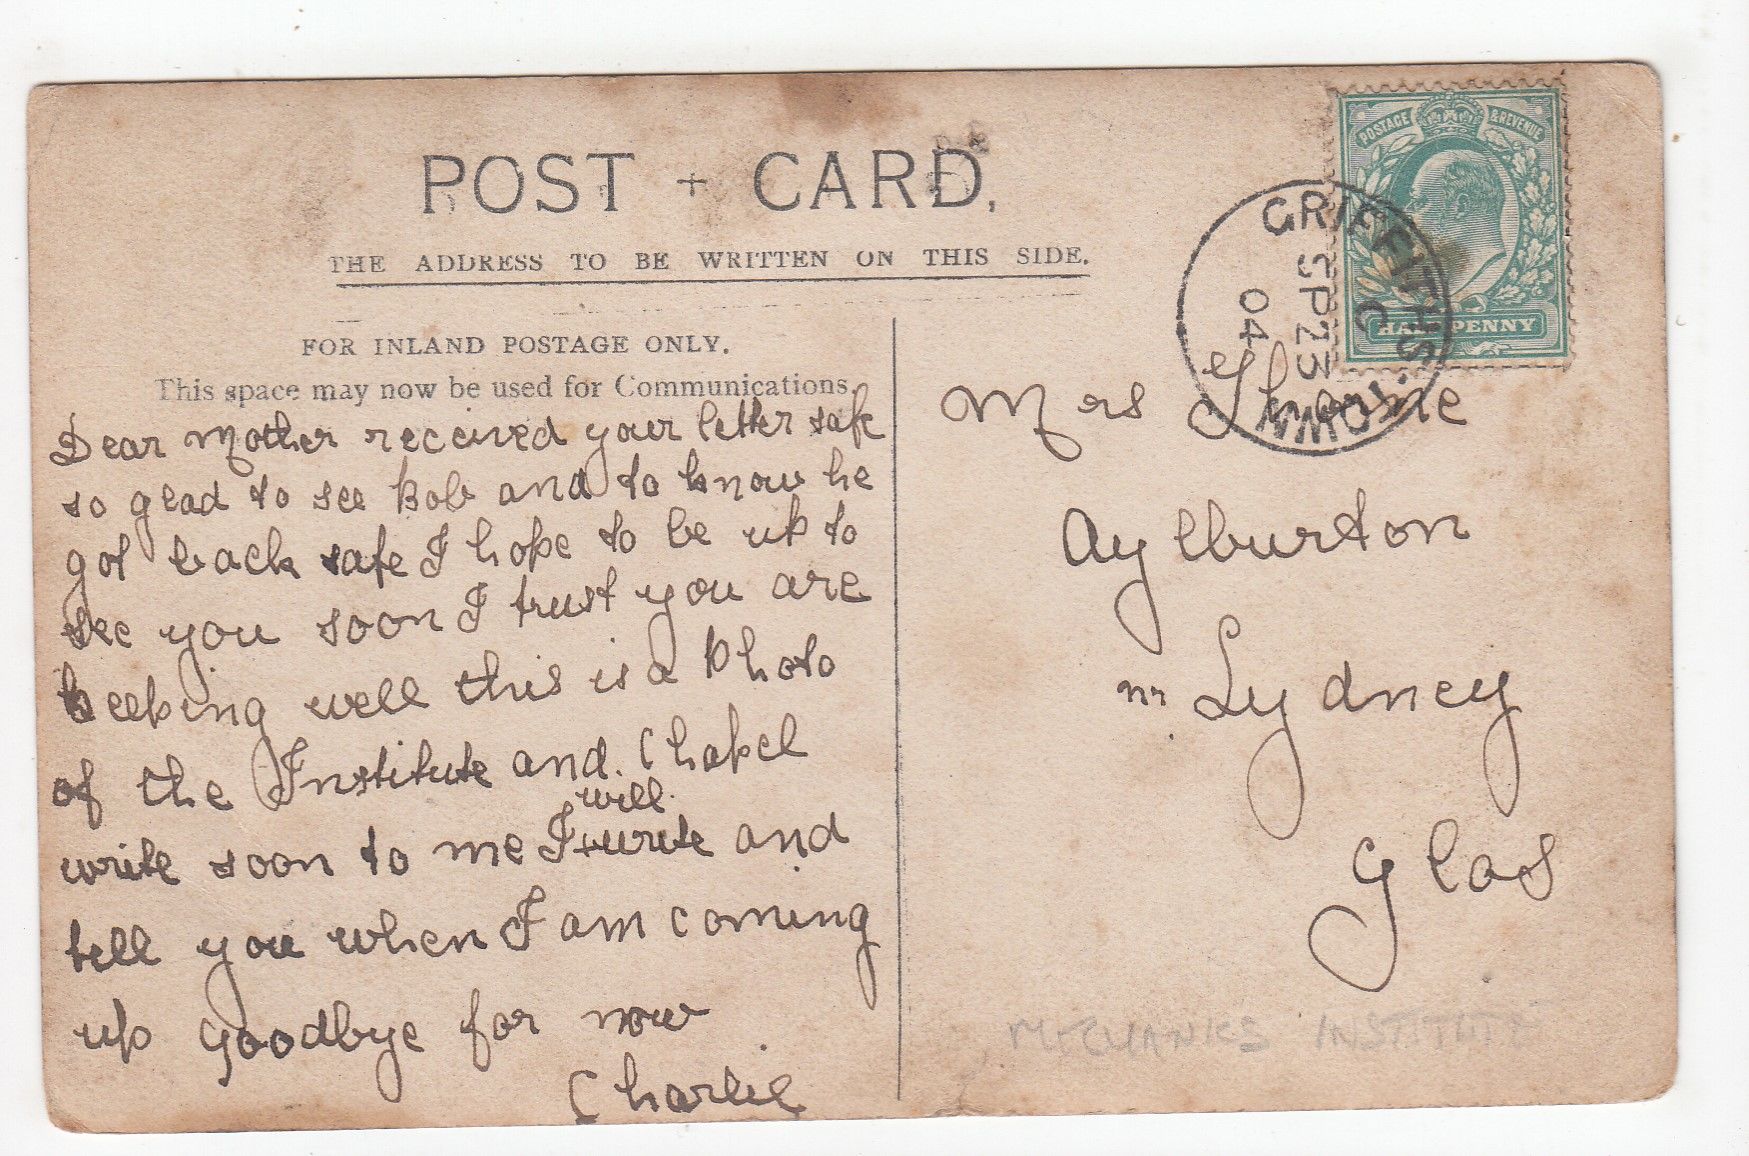 POST + CARD.
THE ADDRESS TO BE WRITTEN ON THIS SIDE.
FOR INLAND POSTAGE ONLY.
This space may now be used for Communications.
Dear Mother received your letter safe
so glad to see Bob and to know he
got back safe I hope to be up to
see you soon I trust you are
keeping well this is a Photo
of the Institute and. Chapel
will.
write soon to me I + write and
tell you when I am coming
up Goodbye for now
Charlie
POSTAGE & REVENUE
HALFPENNY
GRIFFITHSTOWN
C
SP 23
04
Mrs Thorne
Aylburton
nr Lydney
Glos
MECHANICS INSTITUTE